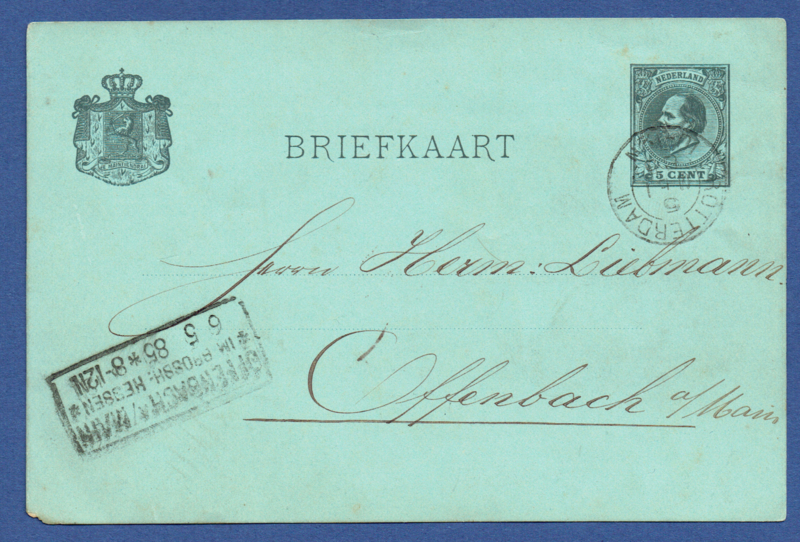 NEDERLAND
5 CENT
BRIEFKAART
ROTTERDAM
5
Herrn Herm: Liebmann.
Offenbach a/Main
OFFENBACH A/MAIN
* IM GROSSH. HESSEN *
6 5 85 * 8-12N